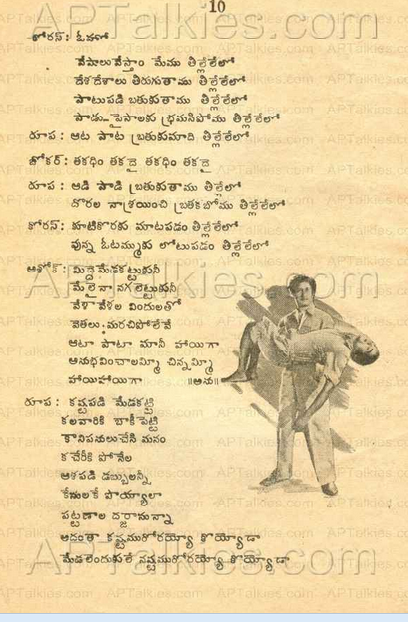 10
కోరస్ : ఓహో
వేషాలు వేస్తాం మేము తిల్లేలేలో
దేశదేశాలు తిరుగుతాము తిల్లేలేలో
పాటుపడి బతుకుతాము తిల్లేలేలో
పాడు పైసాలకు భ్రమసిపోము తిల్లేలేలో
రూప : ఆట పాట బ్రతుకుమాది తిల్లేలేలో
జోకర్ : తకధిం తకధై తకధిం తకధై
రూప : ఆడి పాడి బ్రతుకుతాము తిల్లేలో
దొరల నాశ్రయించి బ్రతకబోము తిల్లేలేలో
కోరస్ : కూటికొరకు మాటపడం తిల్లేలేలో
వున్న ఓటమ్ముకు లోటుపడం తిల్లేలేలో
అశోక్ : మిద్దెమేడకట్టుకుని
మేలైనా నగలెట్టుకునీ
వేళావేళల విందులతో
వెతలు మరచిపోలేవే
ఆటా పాటా మానీ హాయిగా
అనుభవించాలమ్మీ చిన్నమ్మీ
హాయిహాయిగా ॥ఆను॥
రూప : కష్టపడి మేడకట్టి
కలవారికి బాకీపెట్టి
కానిపనులుచేసి మనం
కచేరీకి పోనేల
ఆశపడి డబ్బులన్నీ
కేసులకే పొయ్యాలా
పట్టణాల దర్జాకన్నా
అదంతా కష్టముకోరయ్యో కొయ్యోడా
మేడలెందుకులే నష్టముకోరయ్యో కొయ్యోడా
APTalkies.com